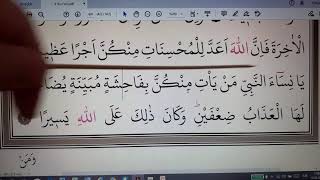 الْاٰخِرَةَ فَاِنَّ اللّٰهَ اَعَدَّ لِلْمُحْسِنَاتِ مِنْكُنَّ اَجْرًا
يَا نِسَاءَ النَّبِيِّ مَنْ يَأْتِ مِنْكُنَّ بِفَاحِشَةٍ مُبَيِّنَةٍ
لَهَا الْعَذَابُ ضِعْفَيْنِۜ وَكَانَ ذٰلِكَ عَلَى اللّٰهِ يَسٖيرًا
وَمَنْ